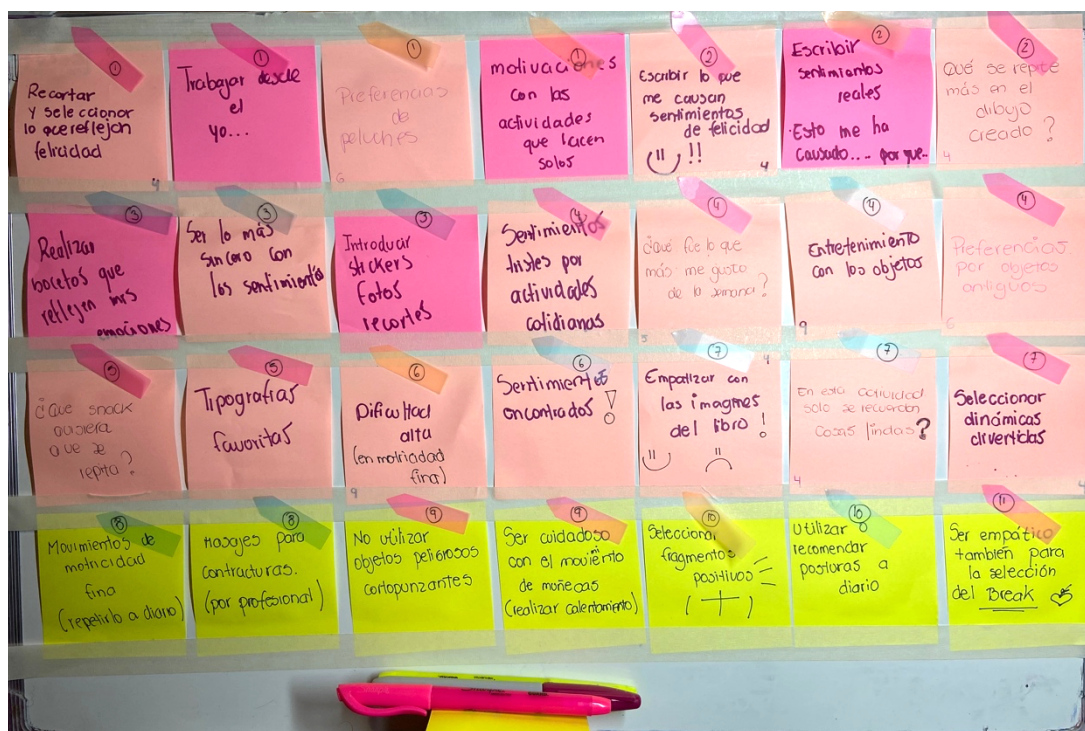 ①
Recortar
y seleccionar
lo que reflejan
felicidad
4
①
Trabajar desde
el
yo...
①
Preferencias
de
peluches
6
①
motivaciones
con las
actividades
que hacen
solos
②
Escribir lo que
me causan
sentimientos
de felicidad
!!
4
②
Escribir
sentimientos
reales
Esto me ha
causado.... por que...
②
Qué se repite
más en el
dibujo
creado?
4
③
Realizar
bocetos que
reflejen mis
emociones
③
Ser lo más
sincero con
los sentimientos
③
Introducir
stickers
fotos
recortes
④
Sentimientos
tristes por
actividades
cotidianas
④
¿Qué fue lo que
más me gusto
de la semana?
5
④
Entretenimiento
con los objetos
9
④
Preferencias
por objetos
antiguos
6
⑤
¿Que snack
quisiera
que se
repita?
⑤
Tipografías
favoritas
⑥
Dificultad
alta
(en motricidad
fina)
9
⑥
Sentimientos
encontrados !
⑦
4
Empatizar con
las imagnes
del libro !
⑦
En esta actividad
solo se recuerdan
cosas lindas?
4
⑦
Seleccionar
dinámicas
divertidas
4
⑧
Movimientos de
motricidad
fina
(repetirlo a diario)
⑧
Masajes para
contracturas.
(por profesional)
⑨
No utilizar
objetos peligrosos
cortopunzantes
⑨
Ser cuidadoso
con el moviemiento
de muñecas
(realizar calentamiento)
⑩
Seleccionar
fragmentos
positivos
(+)
⑩
Utilizar o
recomendar
posturas a
diario
⑪
Ser empático
también para
la selección
del Break